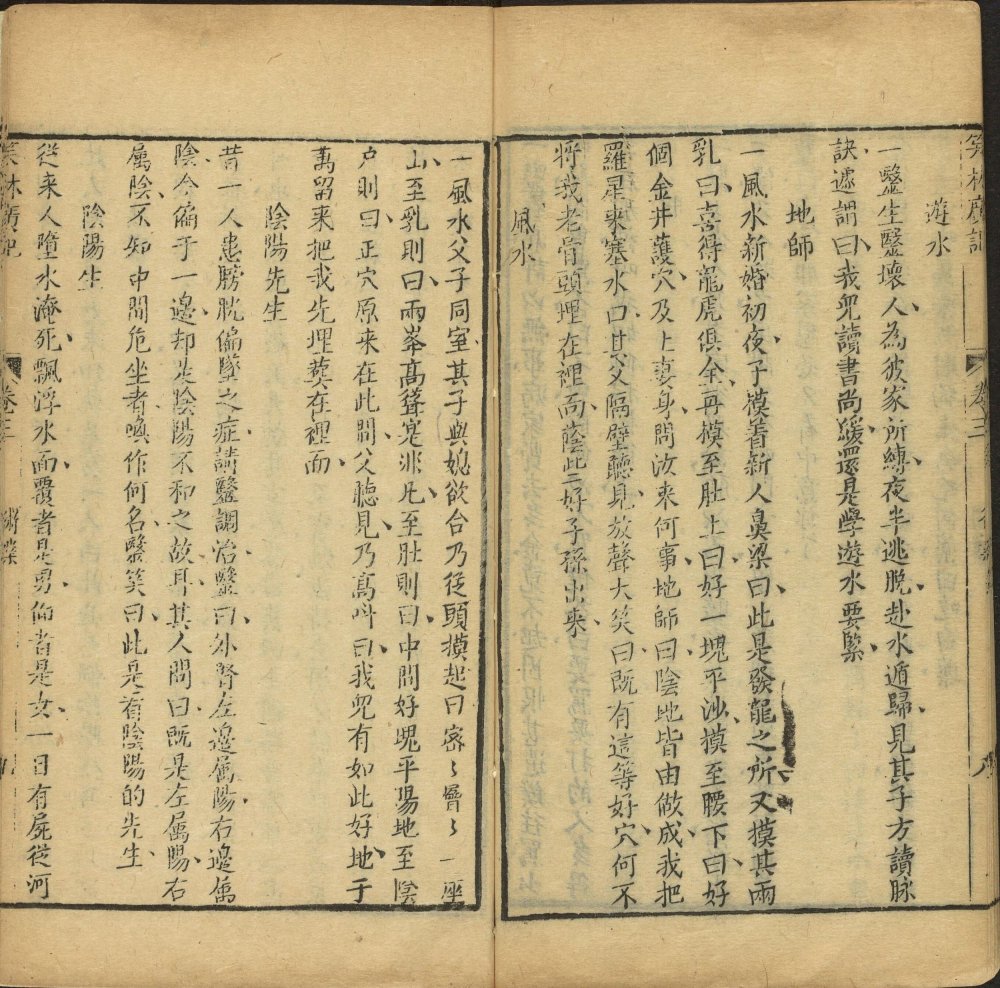 笑林廣記 卷三
遊水
一醫生醫壞人為彼家所縛夜半逃脫赴水遁歸見其子方讀脉
訣遽謂曰我兒讀書尚緩還是學遊水要緊
地師
一風水新婚初夜子摸着新人鼻梁曰此是發龍之所又摸其兩
乳曰喜得龍虎俱全再摸至肚上曰好一塊平沙摸至腰下曰好
個金井護穴及上妻身問汝来何事地師曰陰地皆由做成我把
羅星来塞水口其父隔壁聽見放聲大笑曰既有這等好穴何不
将我老骨頭埋在裡面蔭此二好子孫出来
風水
一風水父子同室其子與媳欲合乃從頭摸起曰密〻層〻一座
山至乳則曰兩峯高聳寔非凡至肚則曰中間好塊平陽地至陰
户則曰正穴原来在此間父聽見乃高呌曰我兒有如此好地于
萬留来把我先埋葬在裡面
陰陽先生
昔一人患膀胱偏墜之症請醫調治醫曰外腎左邊属陽右邊属
陰今偏于一邊却是陰陽不和之故耳其人問曰既是左属陽右
属陰不知中間危坐者喚作何名醫笑曰此是看陰陽的先生
陰陽生
從来人墮水淹死飄浮水面覆者是男仰者是女一日有屍從河
笑林廣記 卷三 術業 九